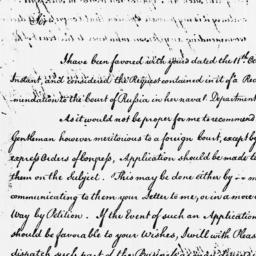 I have been favored with yours dated the 11th Oc
Instant, and considered the Request contained in it of a Rec
mendation to the Court of Russia in her naval Department
As it would not be proper for me to recommend
Gentleman however meritorious to a foreign Court, except by
express Orders of Congress, Application should be made to
them on the Subject. This may be done either by -- m
communicating to them your Letter to me, or in a more
Way by Petition. If the Event of such an Application
should be favorable to your Wishes, I will with Pleas
dispatch such part of the Business